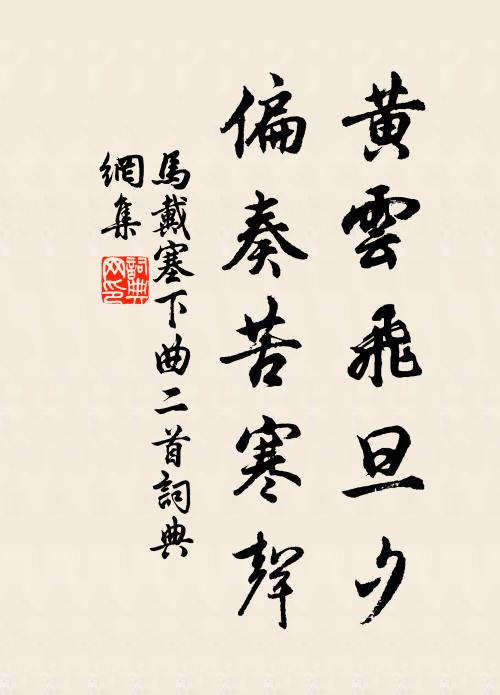 黃雲飛旦夕
偏奏苦寒聲
馬戴塞下曲二首詞典
網集
詞典
网印